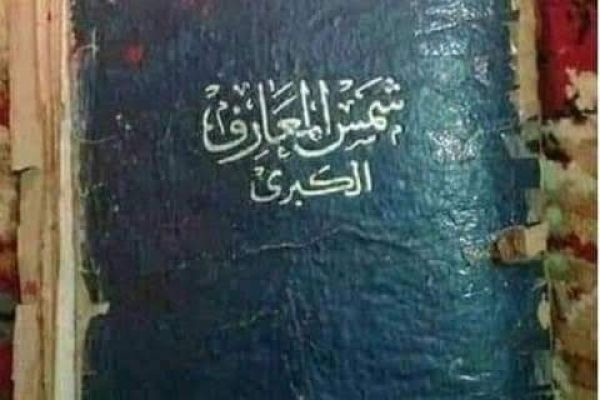 شمس المعارف
الكبرى